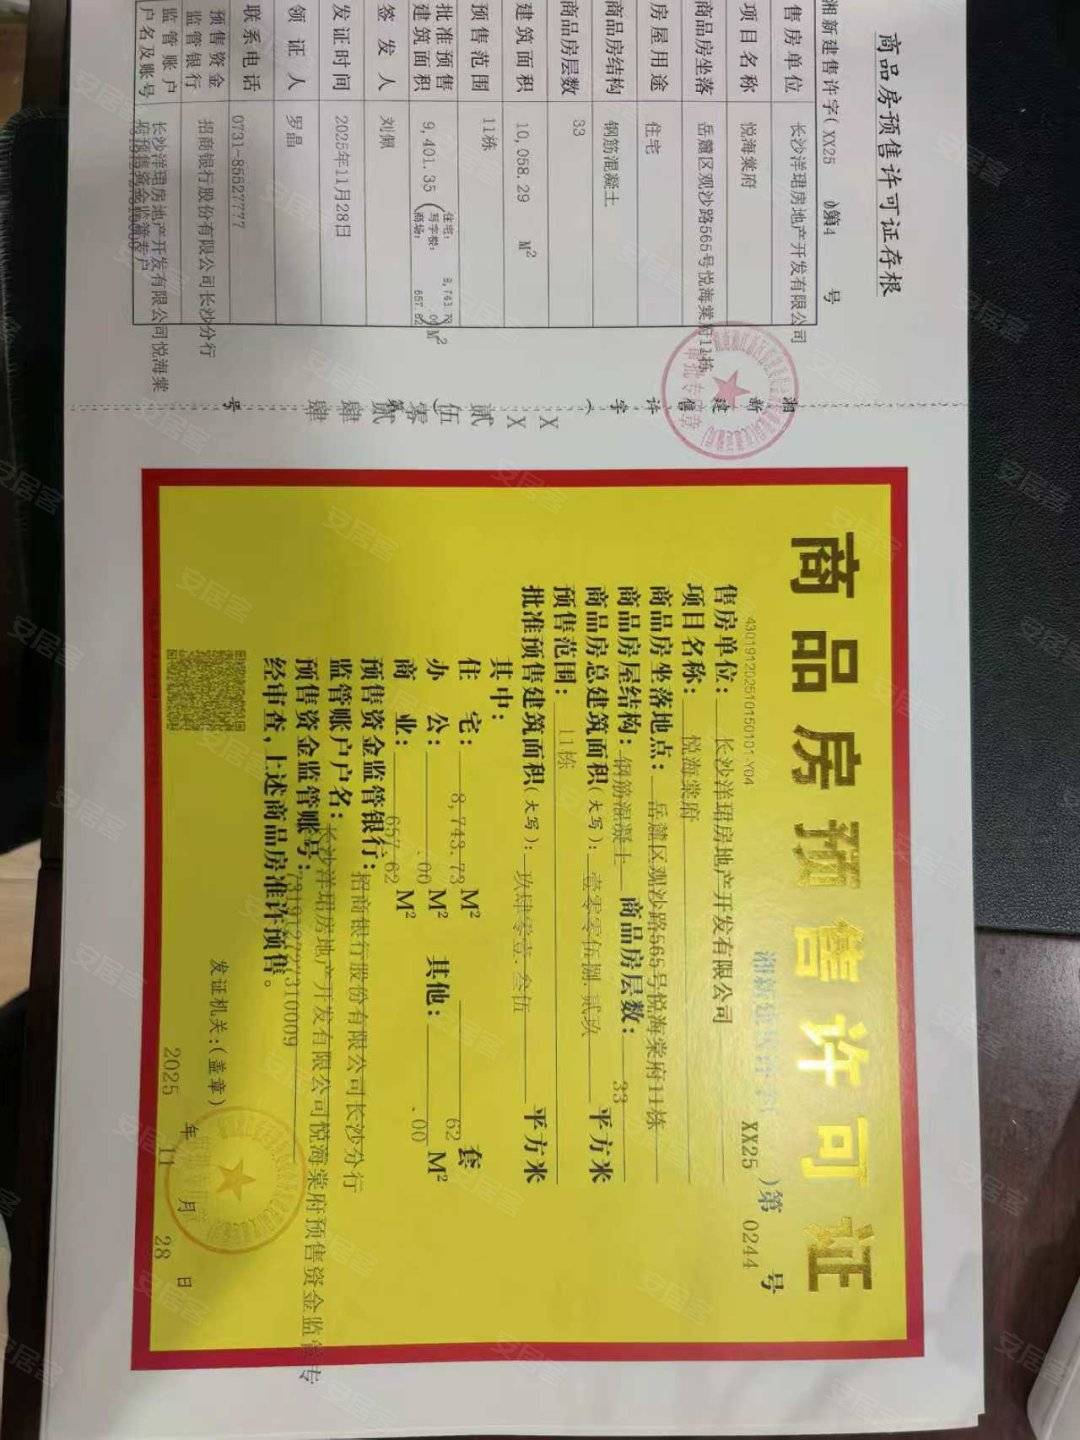 商品房预售许可证存根
湘新建售许字( XX25 )第 号
售房单位 长沙洋珺房地产开发有限公司
项目名称 悦海棠府
商品房坐落 岳麓区观沙路565号悦海棠府11栋
房屋用途 住宅
商品房结构 钢筋混凝土
商品房层数 33
建筑面积 10,058.29 M²
预售范围 11栋
批准预售建筑面积 9,401.35 (住宅: 8,743.73 写字楼: .00 商场: 657.62) M²
签发人 刘佩
发证时间 2025年11月28日
领证人 罗晶
联系电话 0731-85527777
预售资金监管银行 招商银行股份有限公司长沙分行
监管账户户名及账号 长沙洋珺房地产开发有限公司悦海棠府预售资金监管专户
湘新建售许字(XX贰伍)第零贰肆肆号
审批专用章
商品房预售许可证
湘新建售许字( XX25 )第 0244 号
430191202510150101 Y04
售房单位: 长沙洋珺房地产开发有限公司
项目名称: 悦海棠府
商品房坐落地点: 岳麓区观沙路565号悦海棠府11栋
商品房屋结构: 钢筋混凝土 商品房层数: 33
商品房总建筑面积(大写): 壹零零伍捌.贰玖 平方米
预售范围: 11栋
批准预售建筑面积(大写): 玖肆零壹.叁伍 平方米
其中:
住宅: 8,743.73 M² 62 套
办公: .00 M² 其他: .00 M²
商业: 657.62 M²
预售资金监管银行: 招商银行股份有限公司长沙分行
监管账户户名: 长沙洋珺房地产开发有限公司悦海棠府预售资金监管专
预售资金监管账号: 731912727310009
经审查,上述商品房准许预售。
发证机关:(盖章)
2025 年 11 月 28 日
安居客